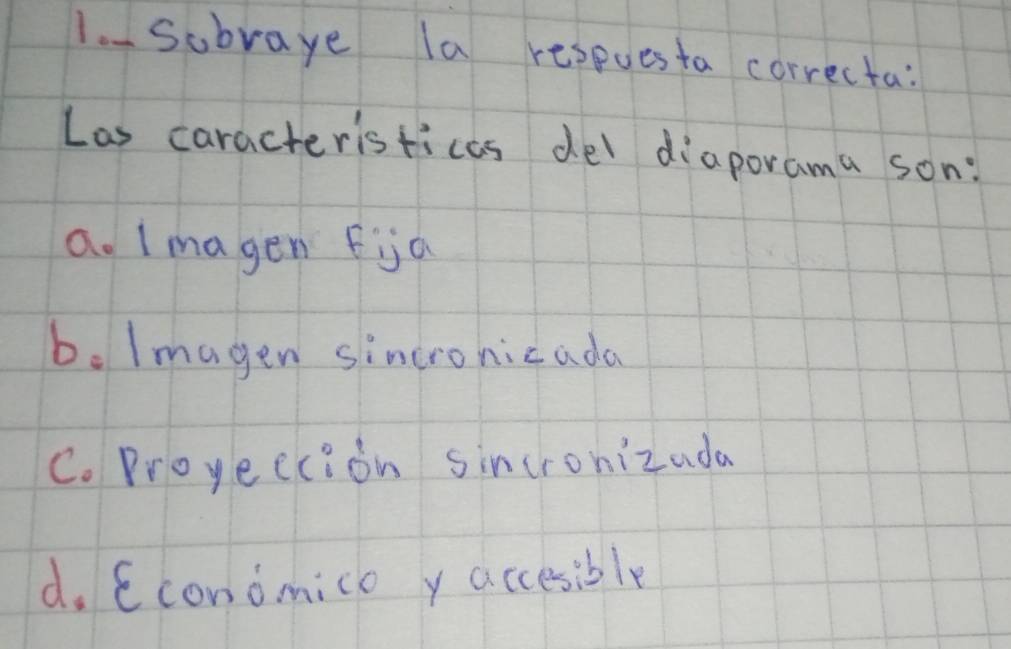 1.- Subraye la respuesta correcta:
Las características del diaporama son:
a. Imagen fija
b. Imagen sincronizada
c. Proyección sincronizada
d. Económico y accesible